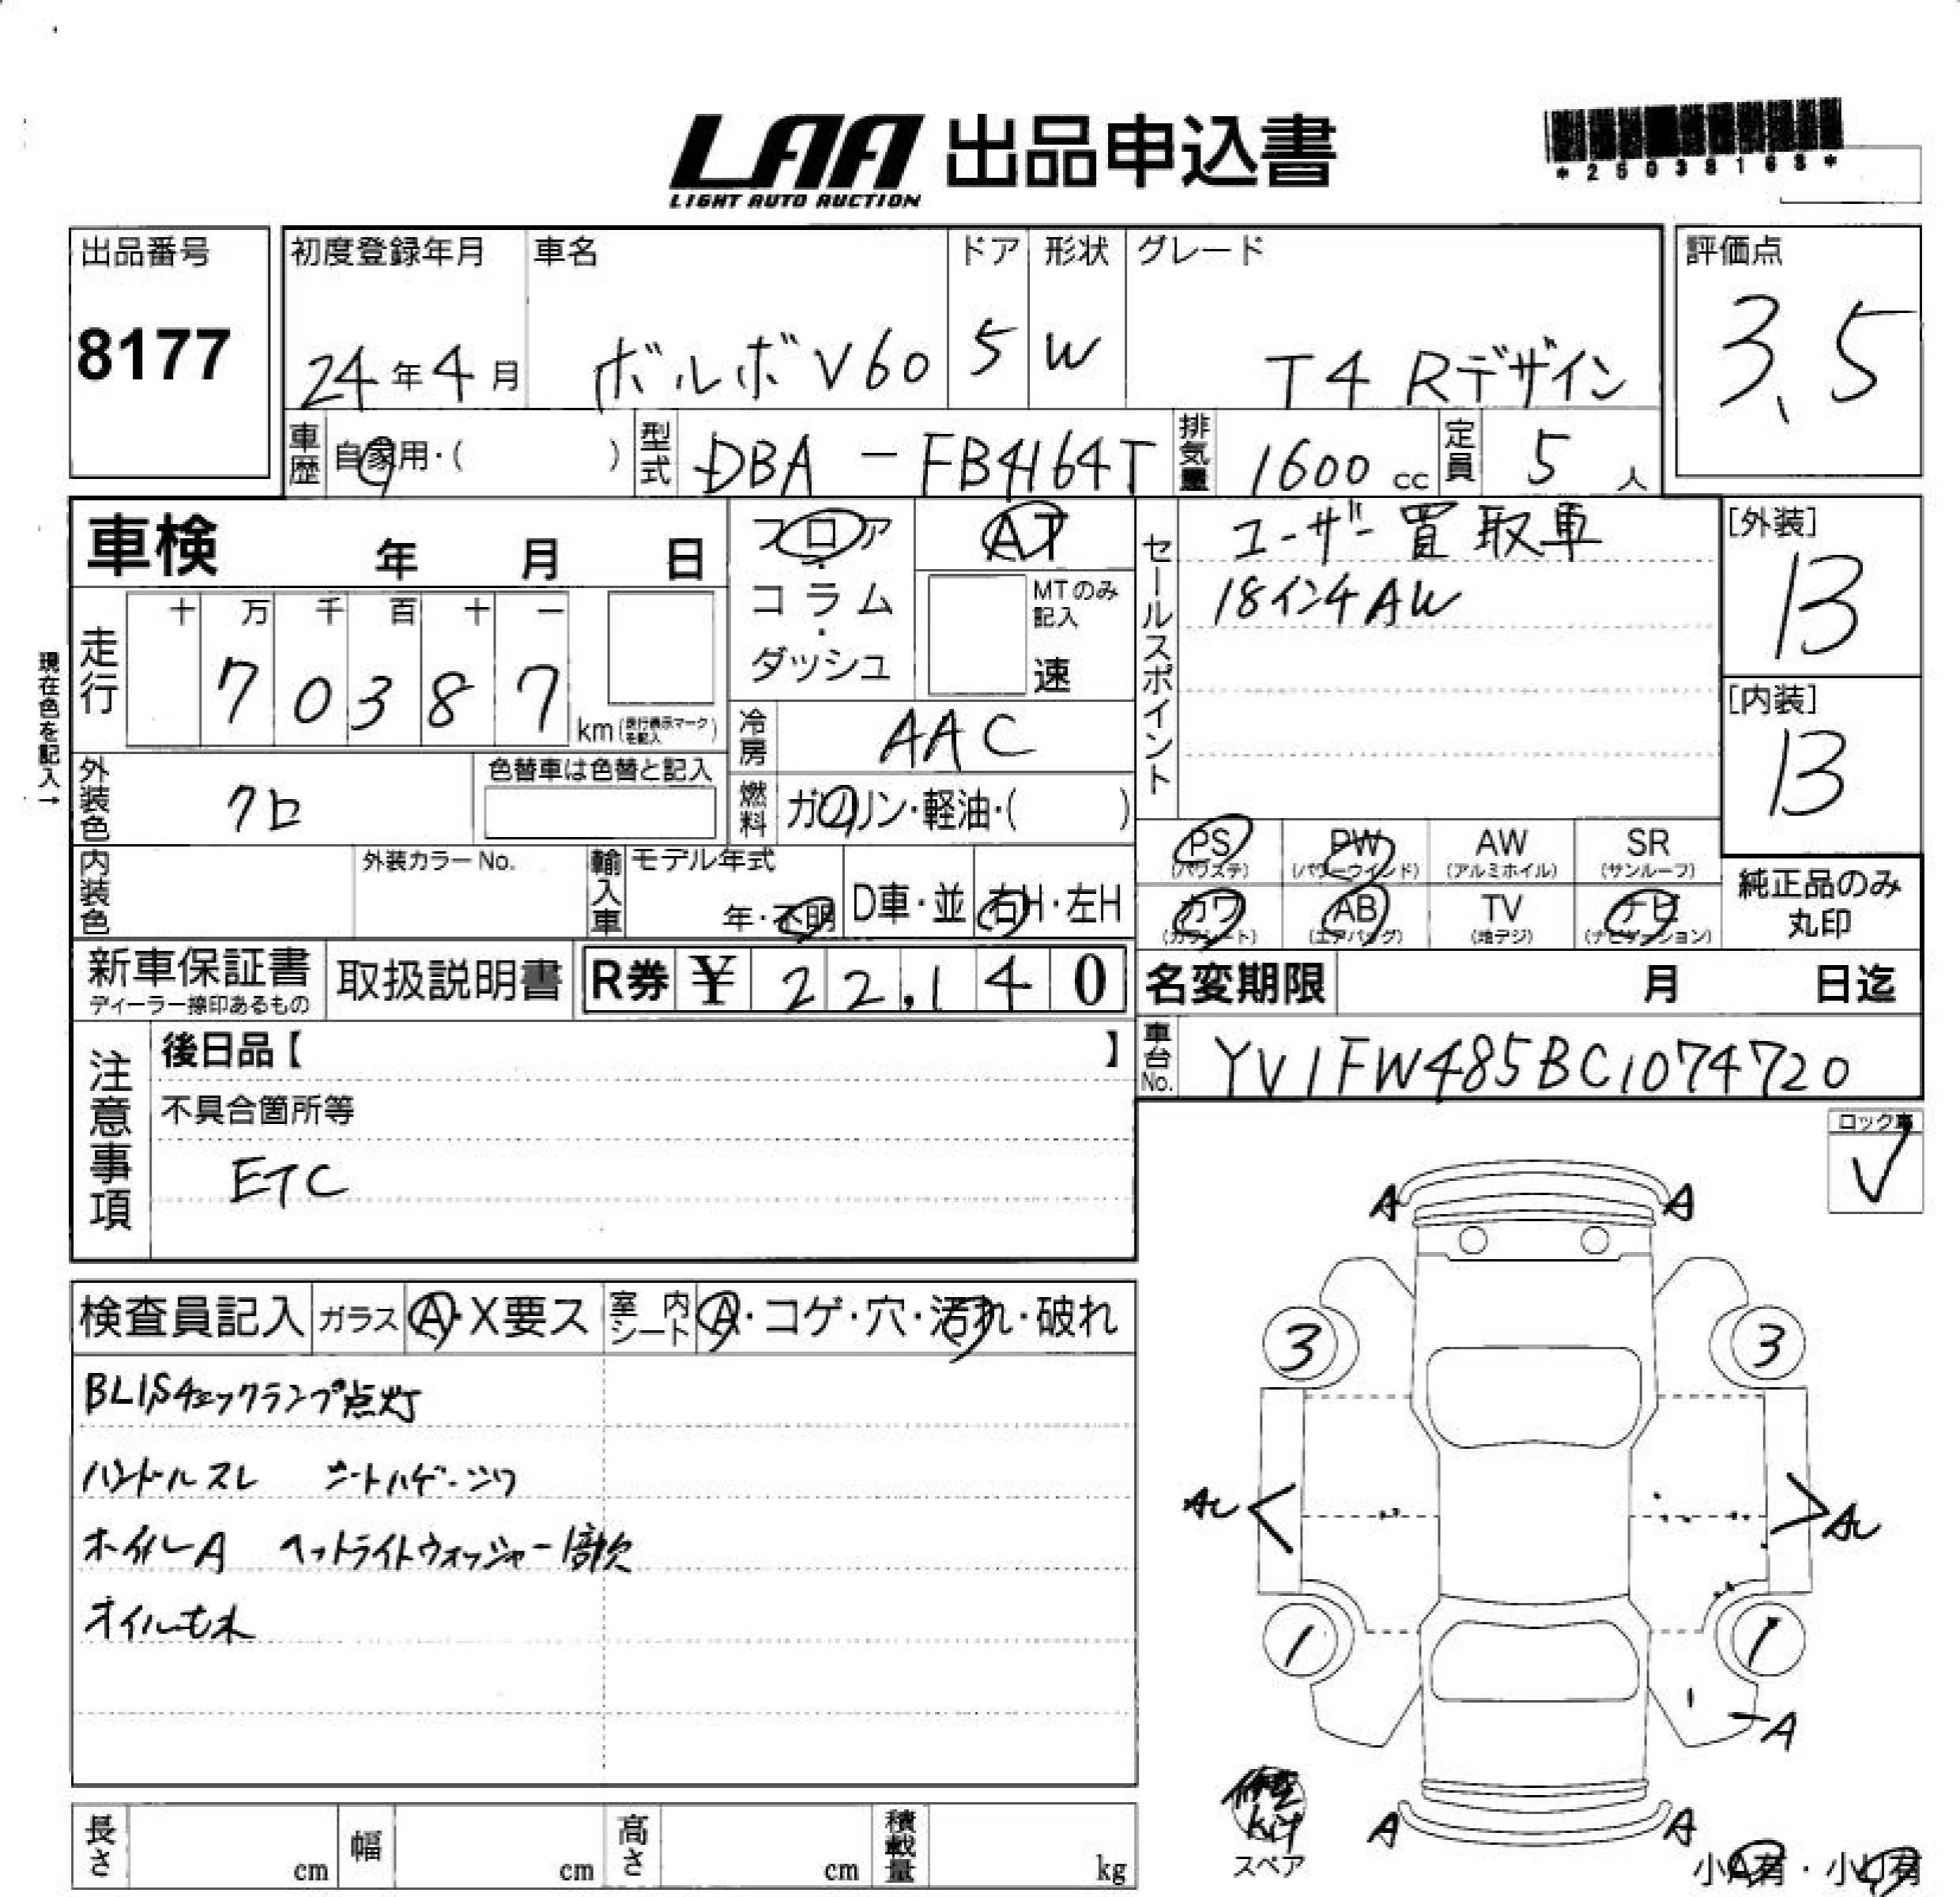 LAA 出品申込書
LIGHT AUTO AUCTION
*25038168*
出品番号
8177
初度登録年月
24年4月
車名
ボルボV60
ドア
5
形状
W
グレード
T4 Rデザイン
評価点
3.5
車歴 自家用・( )
型式 DBA-FB4164T
排気量 1600 cc
定員 5 人
車検 年 月 日
フロア・コラム・ダッシュ
AT
MTのみ記入
速
走行
十 万 千 百 十 一
7 0 3 8 7
km(走行表示マークを記入)
現在色を記入→
冷房 AAC
外装色 クロ
色替車は色替と記入
燃料 ガソリン・軽油・( )
内装色
外装カラーNo.
輸入車
モデル年式
年・不明
D車・並
右H・左H
新車保証書
ディーラー捺印あるもの
取扱説明書
R券 ¥ 22,140
セールスポイント
ユーザー買取車
18インチAW
[外装]
B
[内装]
B
PS
(パワステ)
PW
(パワーウインド)
AW
(アルミホイル)
SR
(サンルーフ)
カワ
(カワシート)
AB
(エアバッグ)
TV
(地デジ)
ナビ
(ナビゲーション)
純正品のみ
丸印
名変期限 月 日迄
車台No. YV1FW485BC1074720
注意事項
後日品【 】
不具合箇所等
ETC
ロック車
✓
検査員記入 ガラス A・X要ス 室内シート A・コゲ・穴・汚れ・破れ
BLISチェックランプ点灯
ハンドルスレ シートハゲ・シワ
ホイルA ヘットライトウォッシャー1部欠
オイルモレ
A A
3 3
AU AU
1 1
A
A A
修理
kit
スペア
小A有・小U有
長さ cm 幅 cm 高さ cm 積載量 kg